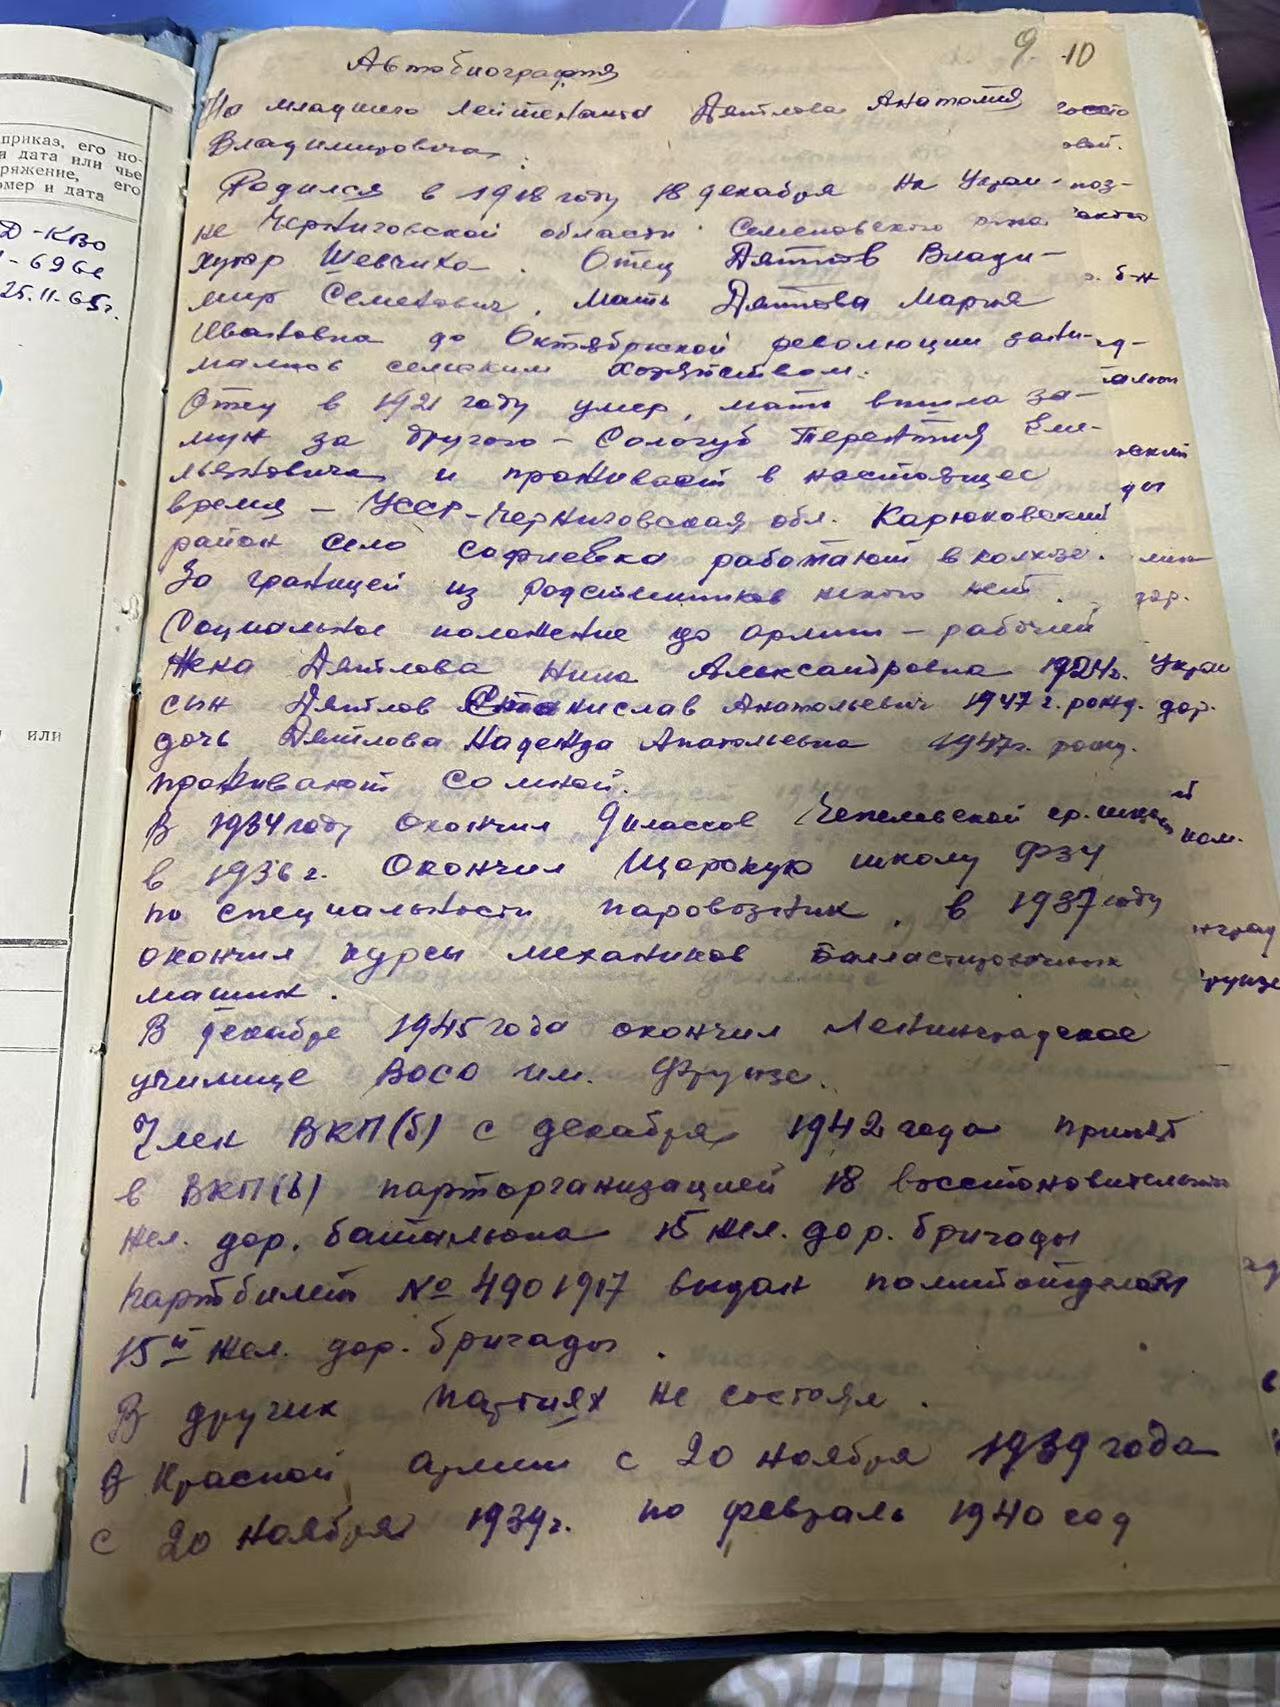 приказ, его но-
и дата или чье
ряжение, его
омер и дата
Д-КВО
-696с
25.11.65г.
или
9 10
Автобиография
На младшего лейтенанта Дятлова Анатолия
Владимировича.
Родился в 1918 году 18 декабря на Украи-
не Черниговской области Семеновского р-на
хутор Шевчиха. Отец Дятлов Влади-
мир Семенович, мать Дятлова Мария
Ивановна до Октябрьской революции зани-
мались сельским хозяйством.
Отец в 1921 году умер, мать вышла за-
муж за другого - Сологуб Терентия Еме-
льяновича и проживает в настоящее
время - УССР-Черниговская обл. Карюковский
район село Софиевка работают в колхозе.
За границей из родственников никого нет.
Социальное положение до армии - рабочий
Жена Дятлова Нина Александровна 1924г.
сын Дятлов Станислав Анатольевич 1947 г. рожд.
дочь Дятлова Надежда Анатольевна 1947г. рожд.
проживают со мной.
В 1934 году окончил 9 классов ср. школы
в 1936 г. окончил Щорскую школу ФЗУ
по специальности паровозник. в 1937 году
окончил курсы механиков балластировочных
машин.
В декабре 1945 года окончил Ленинградское
училище ВОСО им. Фрунзе.
Член ВКП(б) с декабря 1942 года принят
в ВКП(б) парторганизацией 18 восстановительн
жел. дор. батальона 15 жел. дор. бригады
партбилет № 4901917 выдан политотделом
15й жел. дор. бригады.
В других партиях не состоял.
В Красной армии с 20 ноября 1939 года
с 20 ноября 1939г. по февраль 1940 год